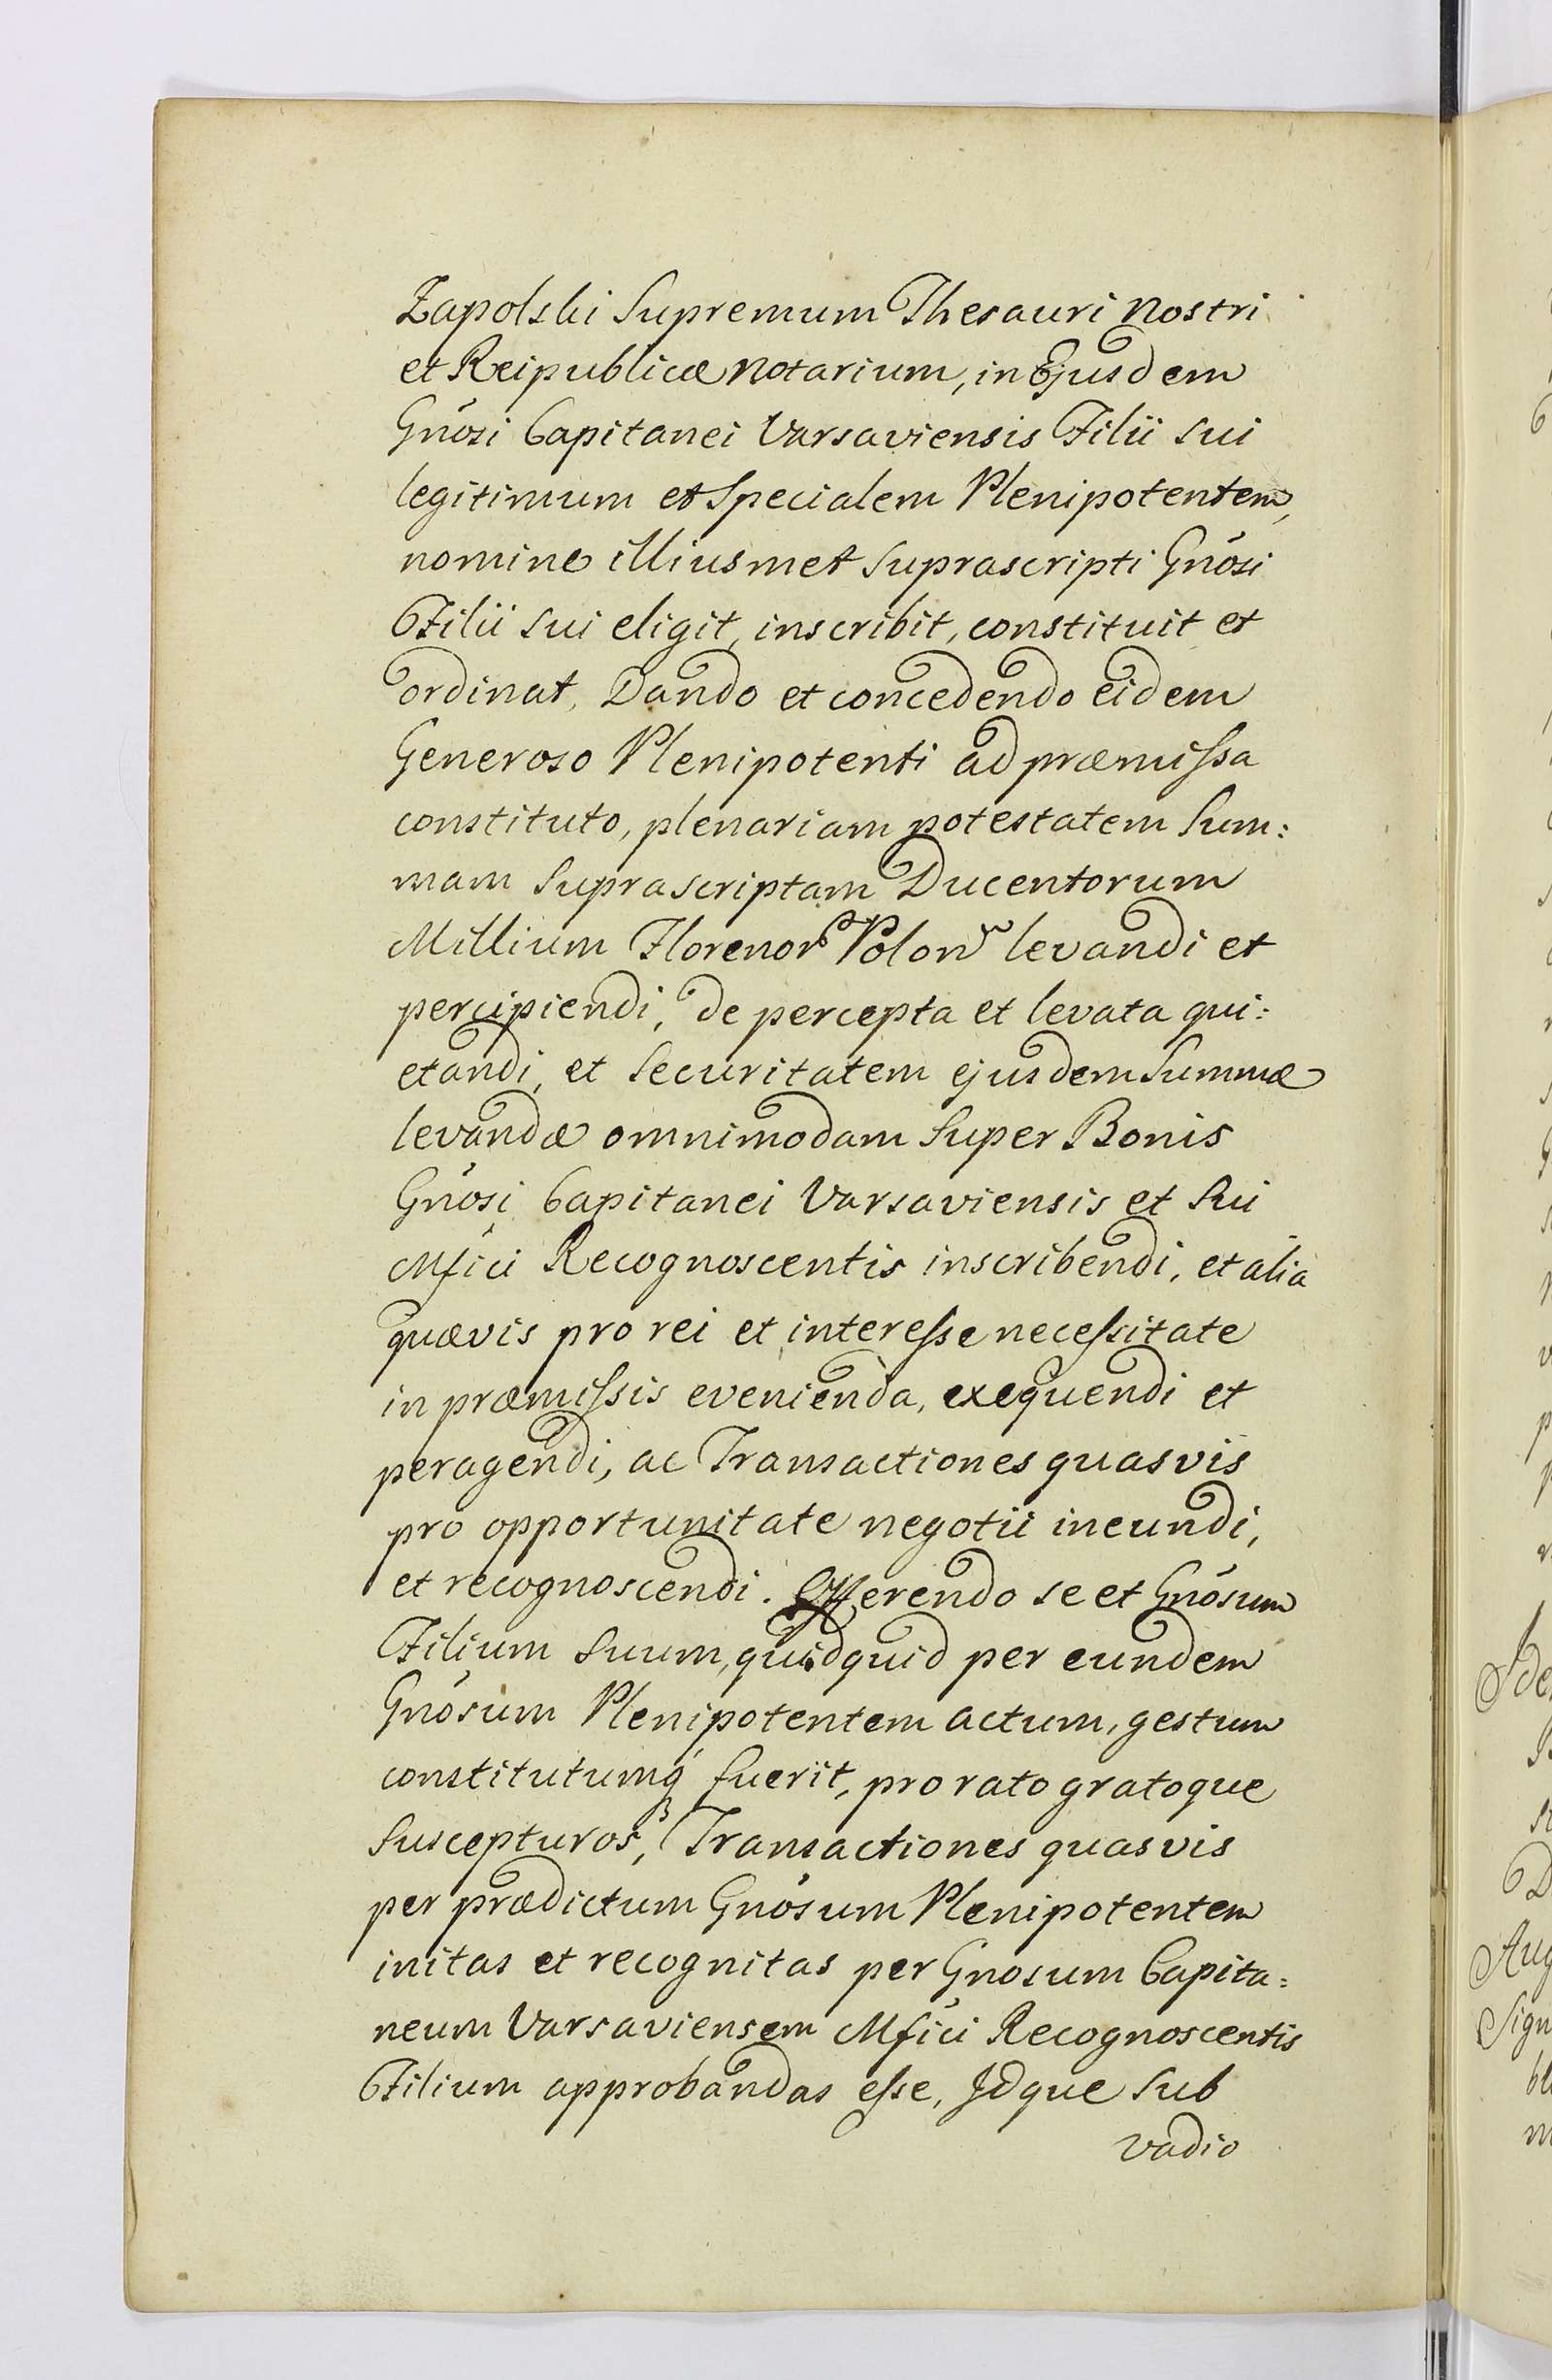 Zapolski Supremum Thesauri Nostri
et Reipublicæ Notarium, in Ejusdem
Gnósi Capitanei Varsaviensis Filii sui
legitimum et Specialem Plenipotentem,
nomine illiusmet suprascripti Gnósi
Filii sui eligit, inscribit, constituit et
ordinat, Dando et concedendo eidem
Generoso Plenipotenti ad præmissa
constituto, plenariam potestatem Sum:
mam Suprascriptam Ducentorum
Millium Florenor Polon levandi et
percipiendi, de percepta et levata qui:
etandi, et Securitatem ejusdem Summæ
levandæ omnimodam Super Bonis
Gnósi Capitanei Varsaviensis et Sui
Mfíci Recognoscentis inscribendi, et alia
quævis pro rei et interesse necessitate
in præmissis evenienda, exequendi et
peragendi, ac Transactiones quasvis
pro opportunitate negotii ineundi,
et recognoscendi. Offerendo se et Gnósum
Filium Suum, quidquid per eundem
Gnósum Plenipotentem actum, gestum
constitutumq́ fuerit, pro rato gratoque
Suscepturos, Transactiones quasvis
per prædictum Gnósum Plenipotentem
initas et recognitas per Gnosum Capita:
neum Varsaviensem Mfíci Recognoscentis
Filium approbandas esse, Idque Sub
vadio